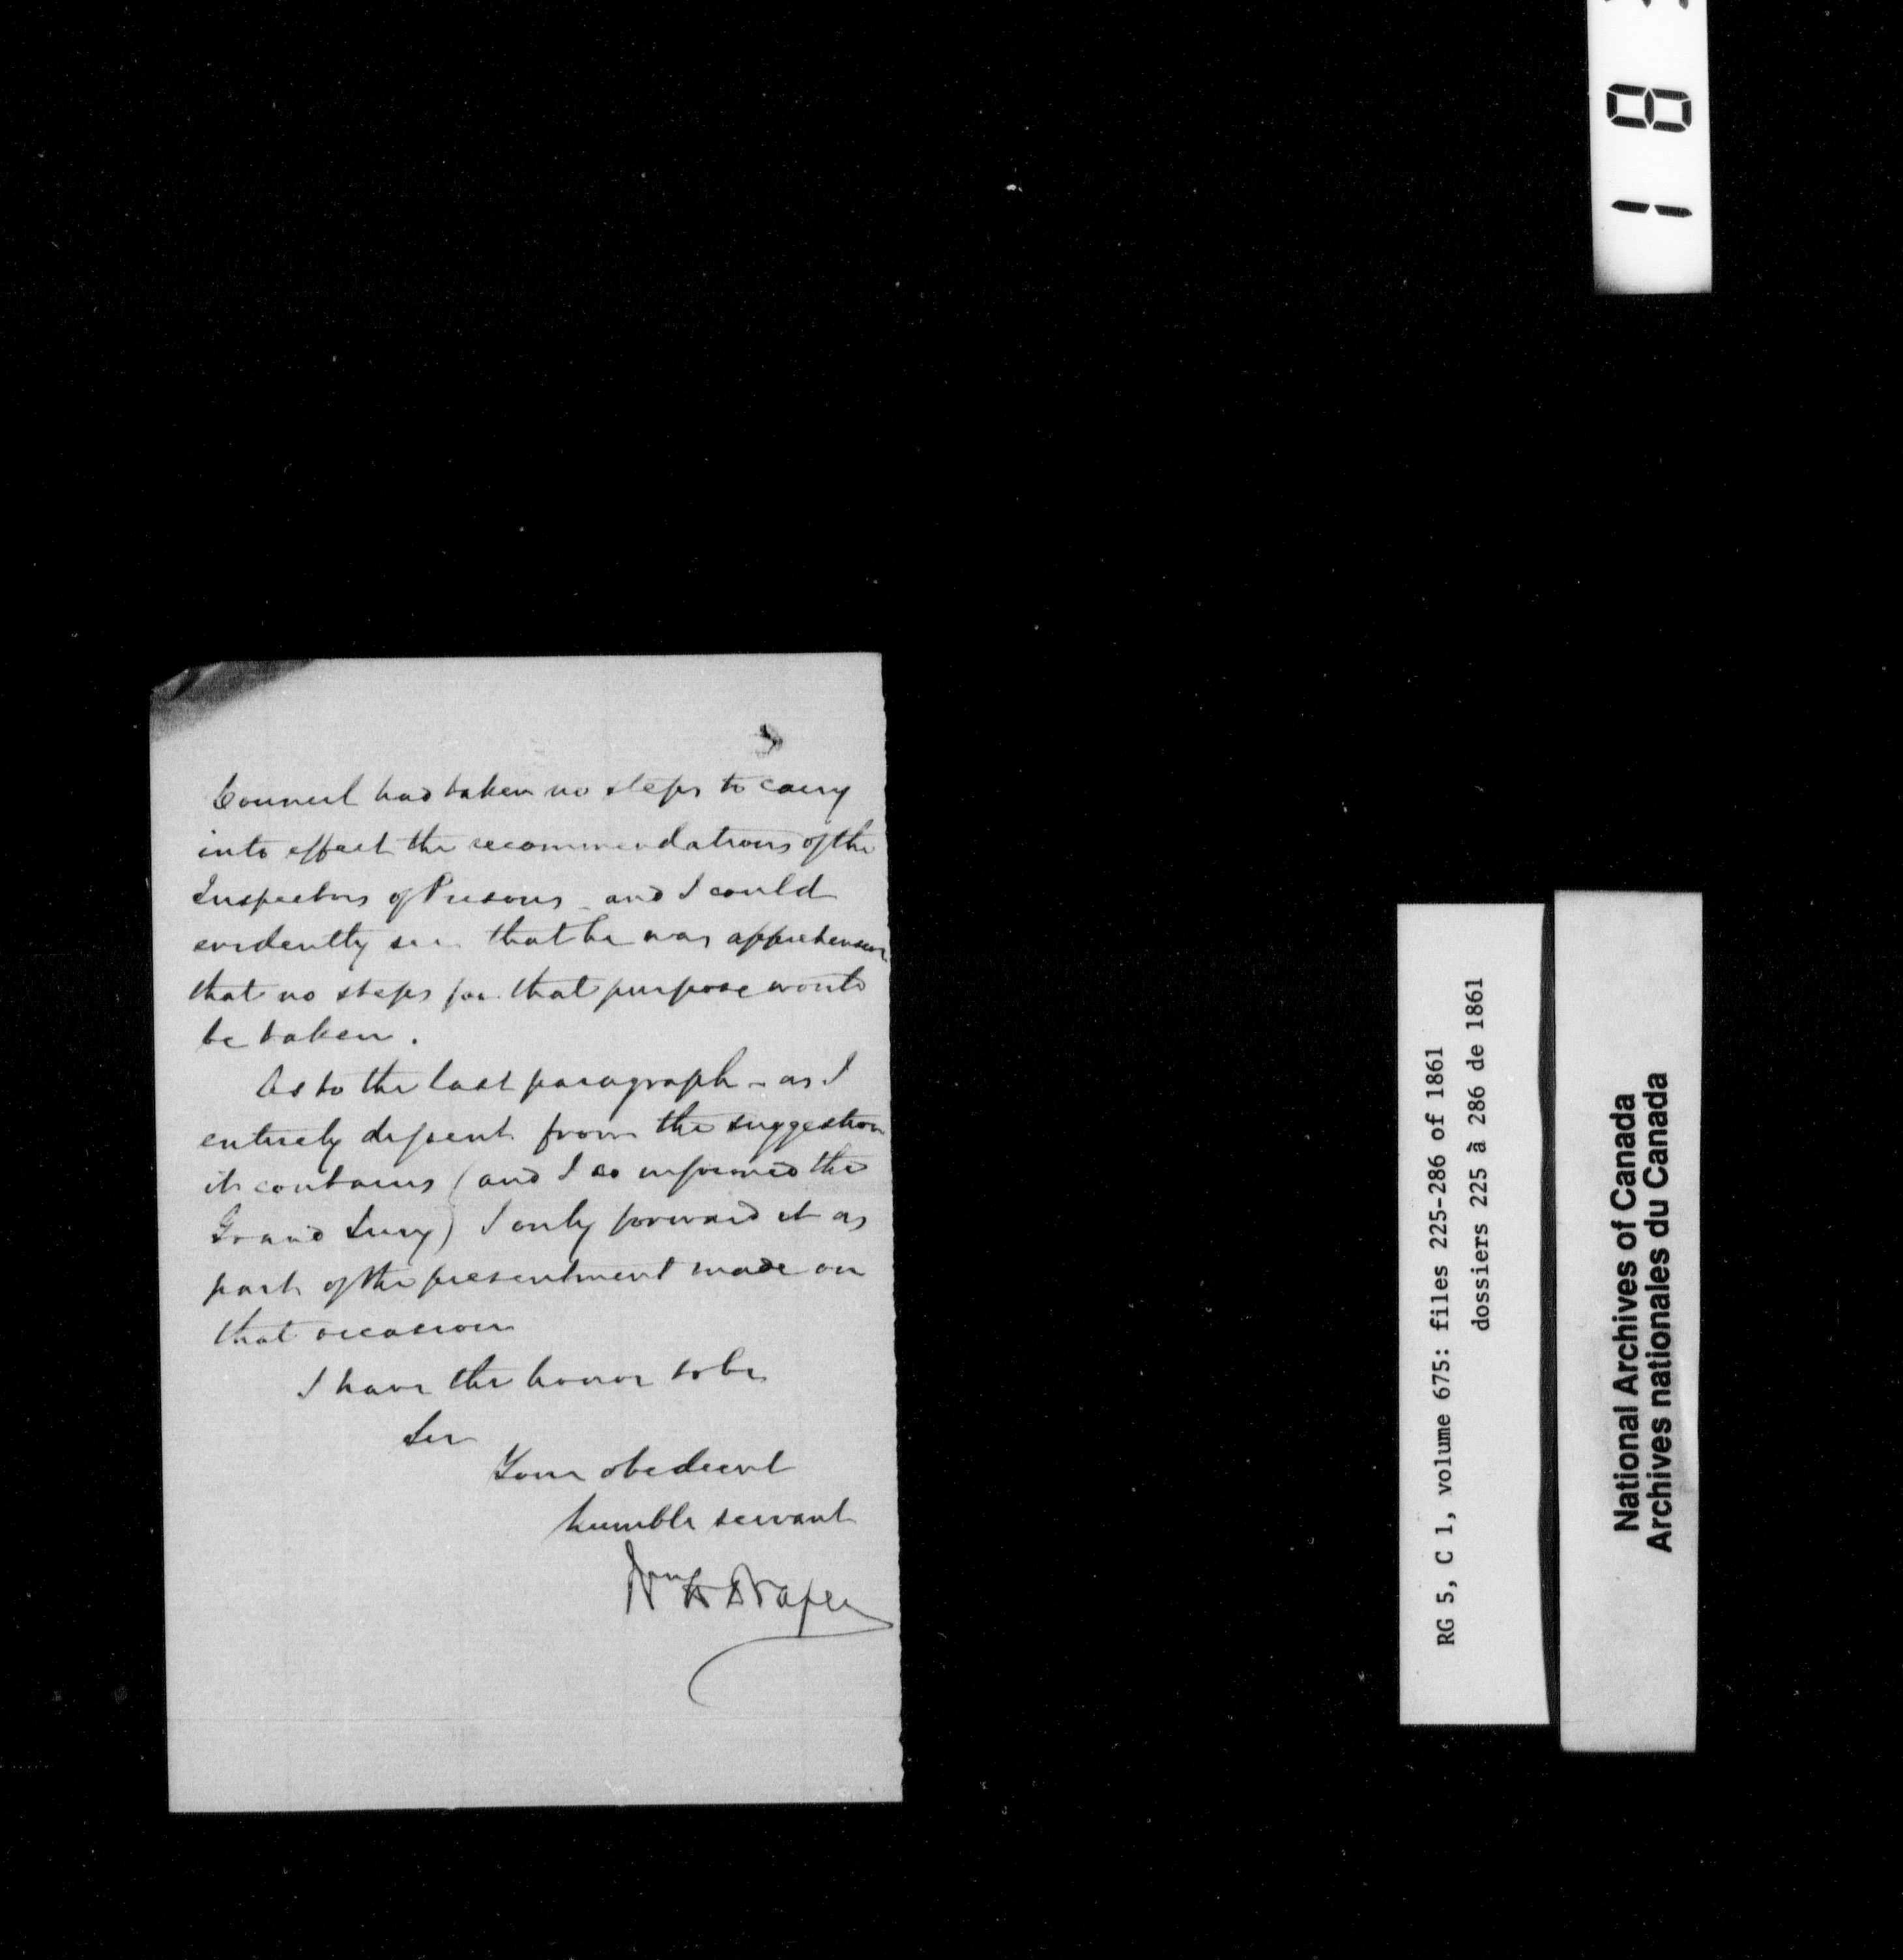 Council had taken no steps to carry
into effect the recommendations of the
Inspectors of Prisons - and I could
evidently see that he was apprehensive
that no steps for that purpose would
be taken.
As to the last paragraph - as I
entirely dissent from the suggestion
it contains (and I so informed the
Grand Jury) I only forward it as
part of the presentment made on
that occasion
I have the honor to be
Sir
Your obedient
humble servant
Wm H Draper
RG 5, C 1, volume 675: files 225-286 of 1861
dossiers 225 à 286 de 1861
National Archives of Canada
Archives nationales du Canada
1 8